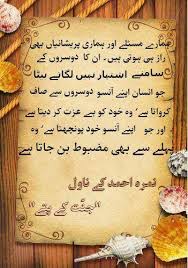 ہمارے مسئلے اور ہماری پریشانیاں بھی
راز ہی ہوتی ہیں۔ ان کا دوسروں کے
سامنے اشتہار نہیں لگاتے بیٹا
جو انسان اپنے آنسو دوسروں سے صاف
کرواتا ہے' وہ خود کو بے عزت کر دیتا ہے
اور جو اپنے آنسو خود پونچھتا ہے' وہ
پہلے سے بھی مضبوط بن جاتا ہے
نمرہ احمد کے ناول
"جنّت کے پتے"